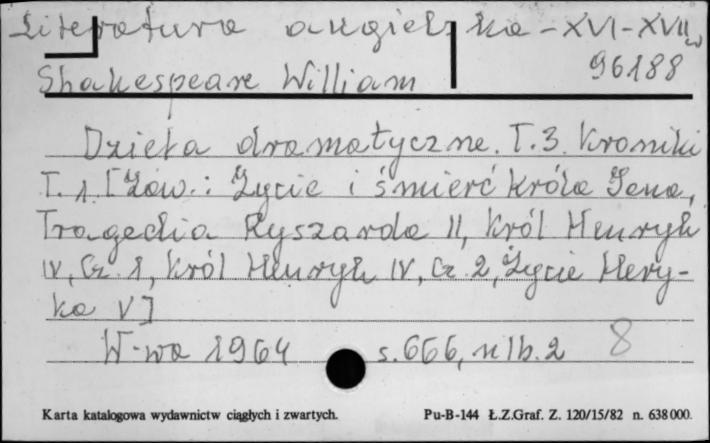 Literatura angielska - XVI-XVII w
96188
Shakespeare William
Dzieła dramatyczne. T.3. Kroniki
T. 1. [Zaw.: Życie i śmierć króla Jana,
Tragedia Ryszarda II, Król Henryk
IV, Cz. 1, Król Henryk IV, Cz. 2, Życie Hery-
ka V]
W-wa 1964 s. 666, nlb. 2 8
Karta katalogowa wydawnictw ciągłych i zwartych. Pu-B-144 Ł.Z.Graf. Z. 120/15/82 n. 638000.